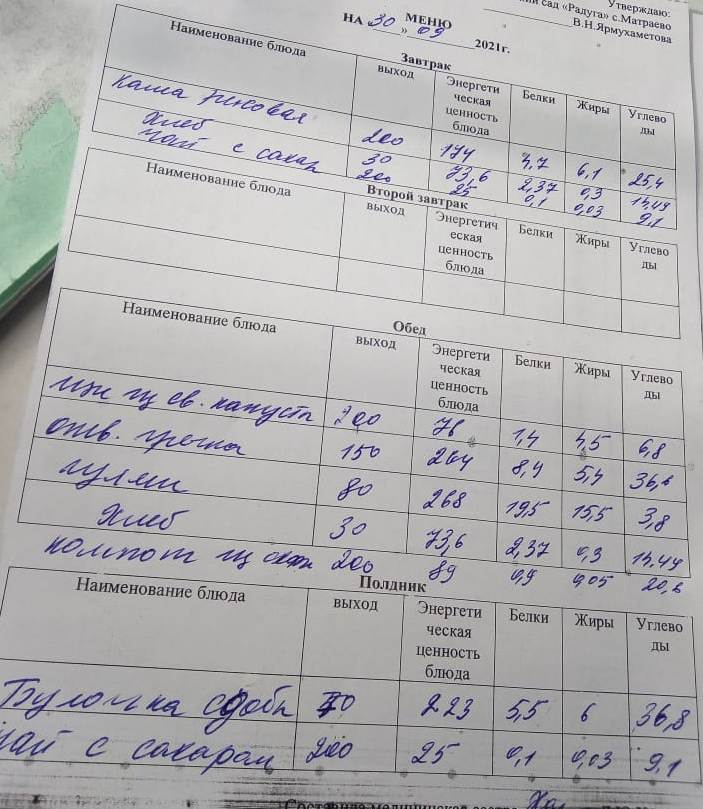 сад «Радуга» с.Матраево
Утверждаю:
В.Н.Ярмухаметова
МЕНЮ
НА 30 » 09 2021г.
Завтрак
Наименование блюда выход Энергети ческая ценность блюда Белки Жиры Углево ды
каша рисовая 200 174 4,7 6,1 25,4
хлеб 30 73,6 2,37 0,3 14,49
чай с сахар 200 25 0,1 0,03 9,1
Второй завтрак
Наименование блюда выход Энергетич еская ценность блюда Белки Жиры Углево ды
Обед
Наименование блюда выход Энергети ческая ценность блюда Белки Жиры Углево ды
щи из св. капусты 200 76 1,4 4,5 6,8
отв. гречка 150 264 8,4 5,4 36,6
гуляш 80 268 19,5 15,5 3,8
хлеб 30 73,6 2,37 0,3 14,49
компот из 200 89 0,9 0,05 20,6
Полдник
Наименование блюда выход Энергети ческая ценность блюда Белки Жиры Углево ды
Булочка сдобн 70 223 5,5 6 36,8
чай с сахаром 200 25 0,1 0,03 9,1